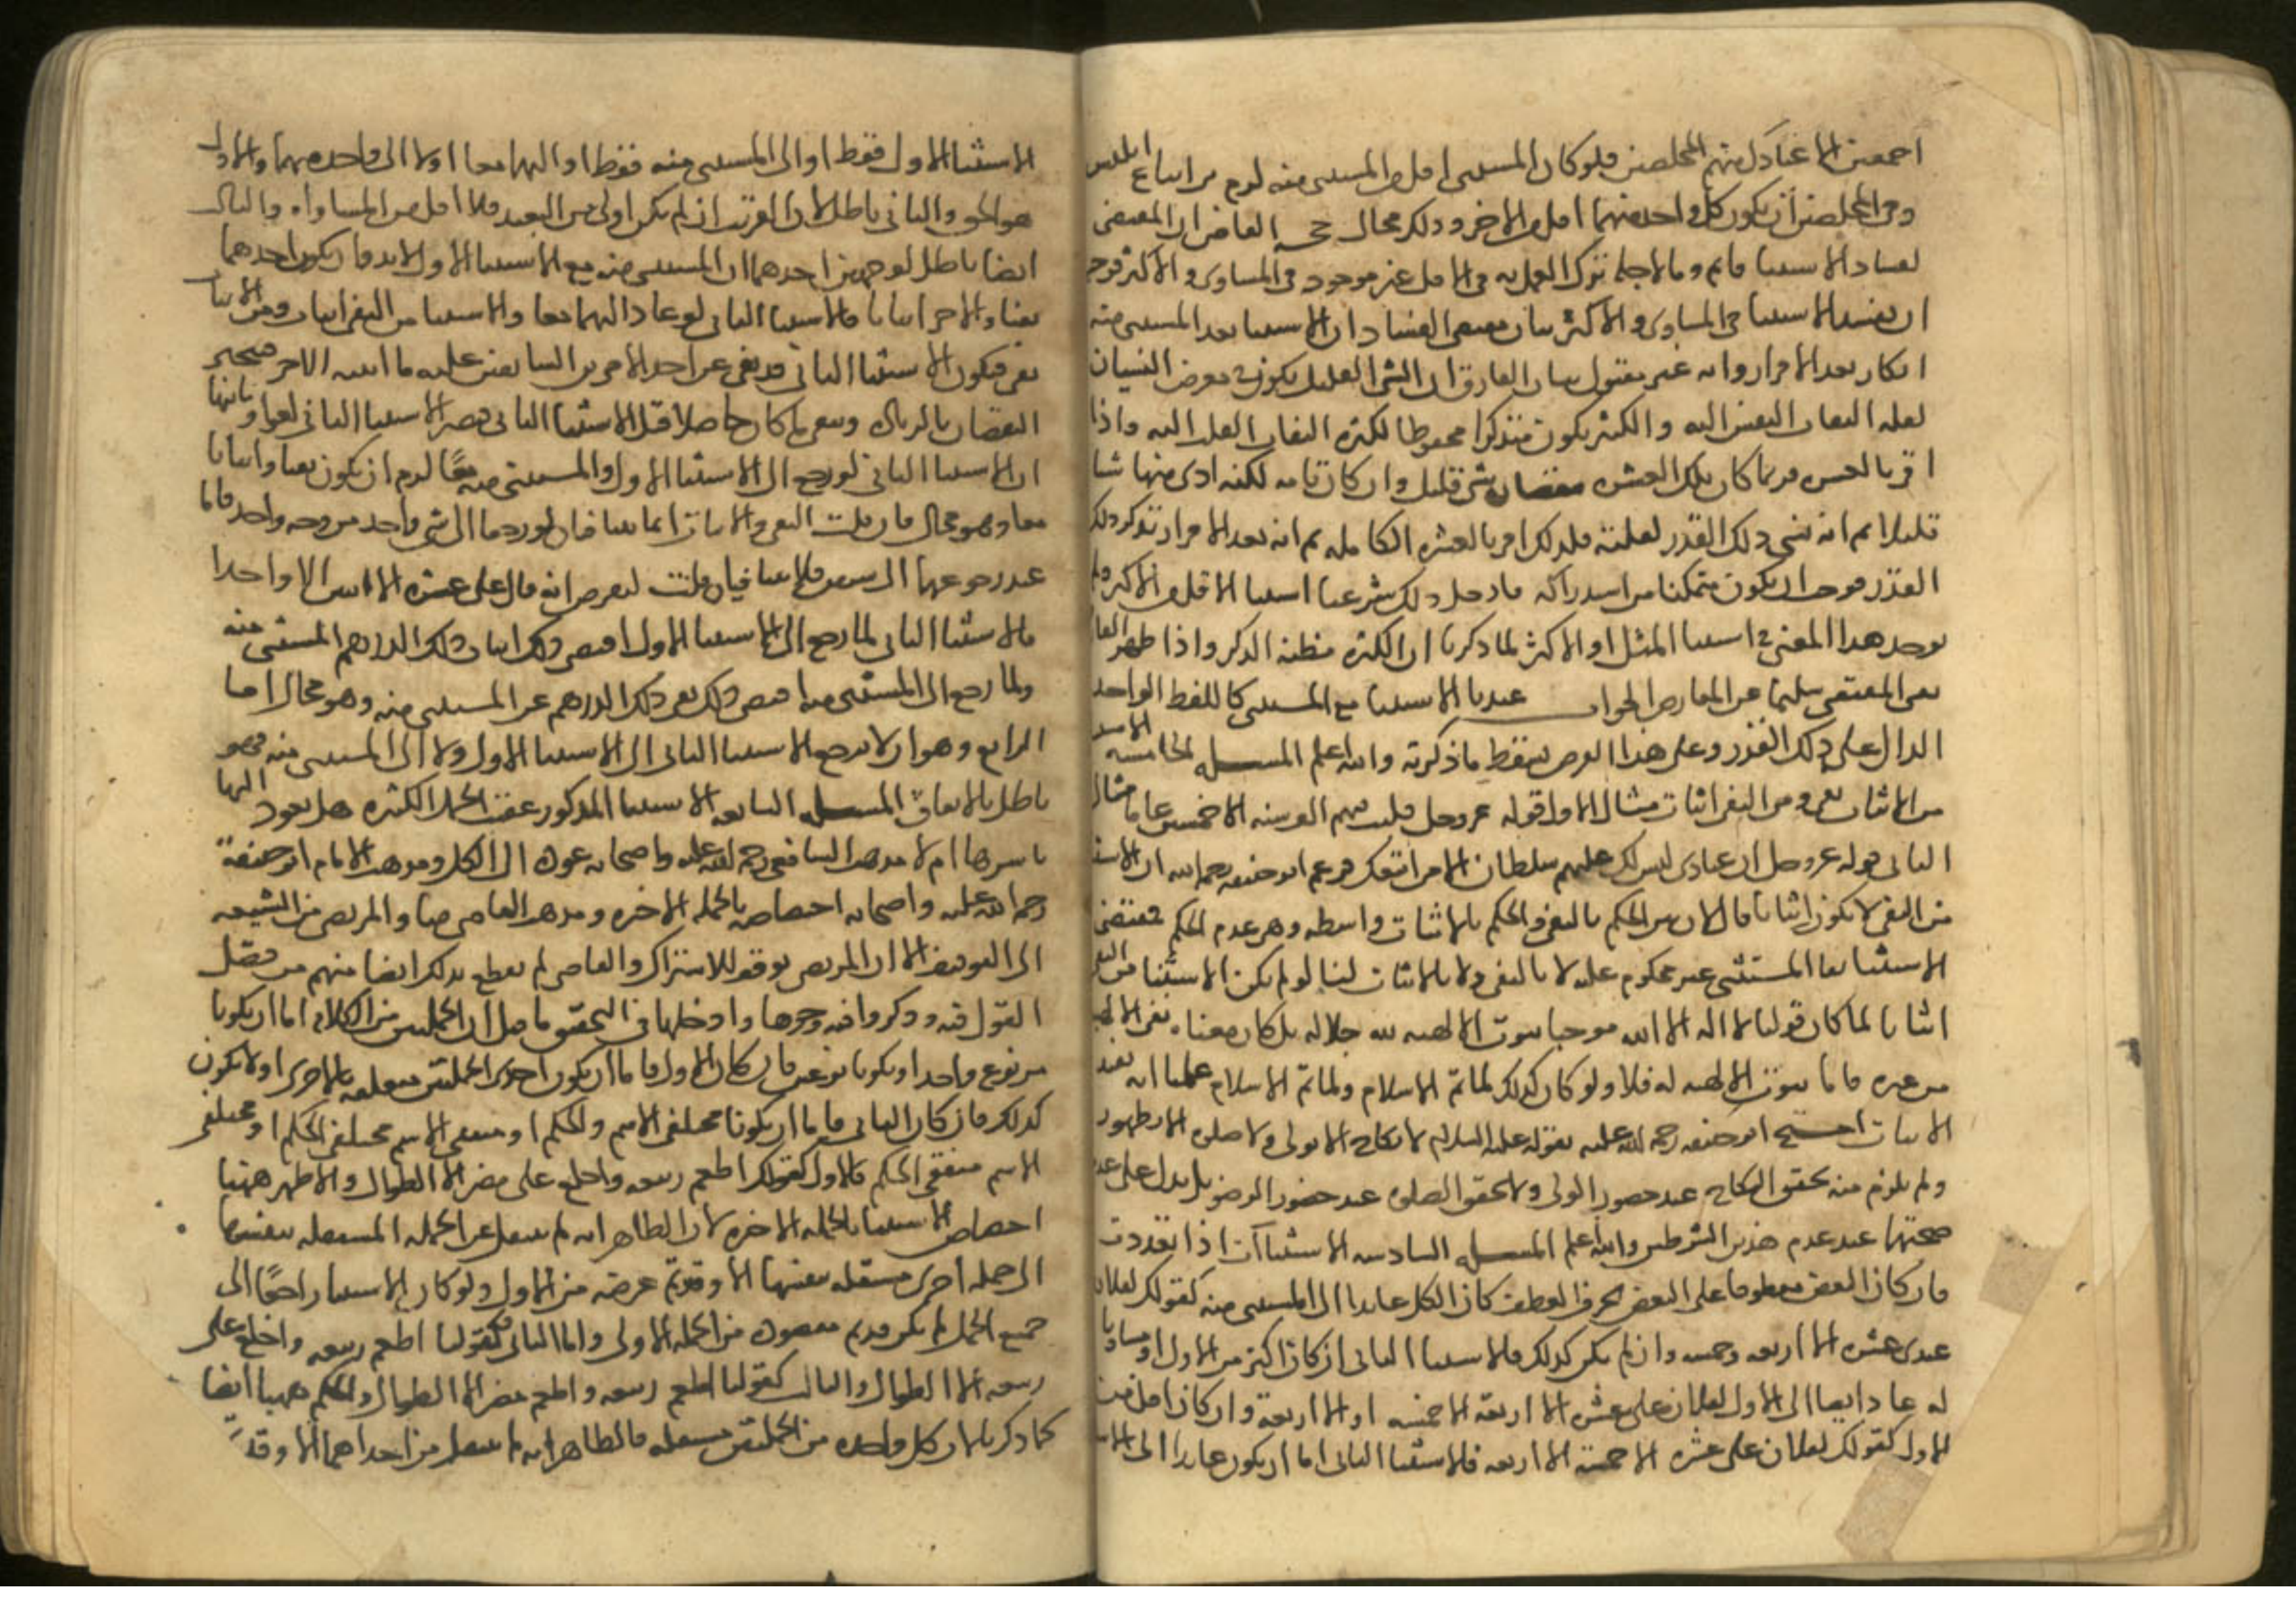 اجمعين الا عبادك منهم المخلصين فلو كان المستثنى اقل من المستثنى منه لزم من اتباع ابليس
ومن المخلصين أن يكون كل واحد منهما اقل من الاخر وذلك محال حجة القاضي ان المقتضى
لفساد الاستثنا قائم وما لاجله ترك العمل به في الاقل غير موجود في المساوى والاكثر فوجب
ان يفسد الاستثنا في المساوى والاكثر بيان مقتضى الفساد ان الاستثنا بعد المستثنى منه
انكار بعد الاقرار وانه غير مقبول بيان الفارق ان الشى القليل يكون في معرض النسيان
لقلة التفات النفس اليه والكثير يكون متذكرا محفوظا لكثرة التفات القلب اليه واذا
اقر بالعشره فربما كان تلك العشره بنقصان شى قليل وان كان تامه لكنه ادى منها شيا
قليلا ثم انه نسى ذلك القدر لقلته فلذلك اقر بالعشره الكامله ثم انه بعد الاقرار تذكر ذلك
القدر فوجب ان يكون متمكنا من استدراكه فلاجل ذلك شرعنا استثنا الاقل من الاكثر ولم
يوجد هذا المعنى في استثنا المثل او الاكثر لما ذكرنا ان الكثره مظنة الذكر واذا ظهر الفارق
بقى المقتضى سليما عن المعارض الجواب عندنا الاستثنا مع المستثنى كاللفظ الواحد
الدال على ذلك القدر وعلى هذا الفرض يسقط ما ذكرته والله اعلم المسئلة الخامسة الاستثنا
من الاثبات نفى ومن النفى اثبات مثال الاول قوله عز وجل فلبث فيهم الف سنه الا خمسين عاما مثال
الثانى قوله عز وجل ان عبادى ليس لك عليهم سلطان الا من اتبعك فزعم ابو حنيفه رحمه الله ان الاستثنا
من النفى لا يكون اثباتا قال لان بين الحكم بالنفى والحكم بالاثبات واسطه وهى عدم الحكم فمقتضى
الاستثنا بقا المستثنى غير محكوم عليه لا بالنفى ولا بالاثبات لنا لو لم يكن الاستثنا من النفى
اثباتا لما كان قولنا لا اله الا الله موجبا ثبوت الالهيه لله جلاله بل كان معناه نفى الالهيه
من غيره فاما ثبوت الالهيه له فلا ولو كان كذلك لما تم الاسلام ولما تم الاسلام علمنا انه يفيد
الاثبات احتج ابو حنيفه رحمة الله عليه بقوله عليه السلام لا نكاح الا بولى ولا صلوه الا بطهور
ولم يلزم منه تحقق النكاح عند حضور الولى ولا تحقق الصلوه عند حضور الوضو بل يدل على عدم
صحتهما عند عدم هذين الشرطين والله اعلم المسئلة السادسه الاستثناآت اذا تعددت
فان كان البعض معطوفا على البعض بحرف العطف كان الكل عايدا الى المستثنى منه كقولك لفلان
عندى عشره الا اربعه وخمسه وان لم يكن كذلك فالاستثنا الثانى ان كان اكثر من الاول او مساويا
له عاد ايضا الى الاول لفلان على عشره الا اربعة الا خمسه او الا اربعة وان كان اقل من
الاول كقولك لفلان على عشره الا خمسة الا اربعه فالاستثنا الثانى اما ان يكون عايدا الى الاستثنا
الاستثنا الاول فقط او الى المستثنى منه فقط او اليهما معا او لا الى واحد منهما والاول
هو الحق والثانى باطل لان القريب ان لم يكن اولى من البعيد فلا اقل من المساواه والثالث
ايضا باطل لوجهين احدهما ان المستثنى منه مع الاستثنا الاول لا بد وان يكون احدهما
نفيا والاخر اثباتا فالاستثنا الثانى لو عاد اليهما معا والاستثنا من النفى اثبات ومن الاثبات
نفى فيكون الاستثنا الثانى قد نفى عن احد الامرين السابقين عليه ما اثبته الاخر فينجبر
النقصان بالزياده ويبقى ما كان حاصلا قبل الاستثنا الثانى فيصير الاستثنا الثانى لغوا وثانيها
ان الاستثنا الثانى لو رجع الى الاستثنا الاول والمستثنى منه معًا لزم ان يكون نفيا واثباتا
معا وهو محال فان قلت النفى والاثبات انما يتنافيان لو رجعا الى شى واحد من وجه واحد فاما
عند رجوعهما الى شيئين فلا يتنافيان قلت لنفرض انه قال على عشره الا اثنين الا واحدا
فالاستثنا الثانى لما رجع الى الاستثنا الاول اقتضى ذلك اثبات ذلك الدرهم المستثنى منه
ولما رجع الى المستثنى منه اقتضى ذلك نفى ذلك الدرهم عن المستثنى منه وهو محال اما
الرابع وهو ان لا يرجع الاستثنا الثانى الى الاستثنا الاول ولا الى المستثنى منه فهو
باطل بالاتفاق المسئلة السابعه الاستثنا المذكور عقيب الجمل الكثيره هل يعود اليها
باسرها ام لا مذهب الشافعى رحمة الله عليه واصحابه عوده الى الكل ومذهب الامام ابو حنيفة
رحمة الله عليه واصحابه اختصاصه بالجمله الاخيره ومذهب القاضى منا والمرتضى من الشيعه
الى التوقف الا ان المرتضى توقف للاشتراك والقاضى لم يقطع بذلك ايضا منهم من فصل
القول فيه وذكروا فيه وجوها وادخلها في التحقيق ما قيل أن الجملتين من الكلام اما ان يكونا
من نوع واحد او يكونا نوعين فان كان الاول فاما ان يكون احدى الجملتين متعلقه بالاخرى او لا تكون
كذلك فان كان الثانى فاما ان يكونا مختلفى الاسم والحكم او متفقى الاسم مختلفى الحكم او مختلفى
الاسم متفقى الحكم فالاول كقولك اطعم ربيعه واخلع على مضر الا الطوال والاظهر ههنا
اختصاص الاستثنا بالجمله الاخيره لان الظاهر انه لم ينتقل عن الجمله المستقله بنفسها
الى جمله أخرى مستقله بنفسها الا وقد تم غرضه من الاول ولو كان الاستثنا راجعًا الى
جميع الجمل لم يكن قد تم مقصوده من الجمله الاولى واما الثانى فكقولنا اطعم ربيعه واخلع على
ربيعه الا الطوال والثالث كقولنا اطعم ربيعه واطعم مضر الا الطوال والحكم ههنا ايضا
كما ذكرنا لان كل واحده من الجملتين مستقله فالظاهر انه لم ينتقل من احداهما الا وقد